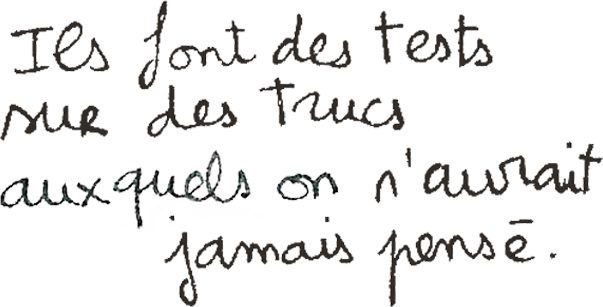 Ils font des tests
sur des trucs
auxquels on n'aurait
jamais pensé.